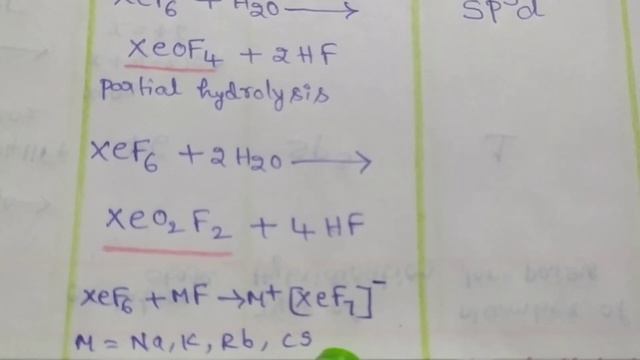 XeF6 + H2O ⟶
XeOF4 + 2HF
partial hydrolysis
XeF6 + 2H2O ⟶
XeO2F2 + 4HF
XeF6 + MF → M+ [XeF7]−
M = Na, K, Rb, Cs
sp3d